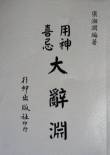 張淵淵編著
用神
喜忌
大辭淵
行卯出版社印行